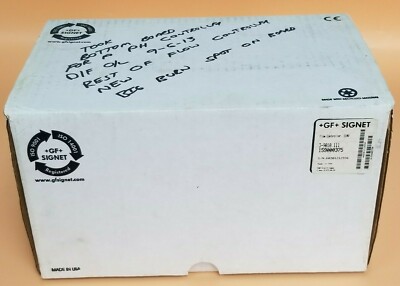 TOOK BOARD
BOTTOM PH CONTROLLER
FOR A
DIF O/L 9-6-13
REST OF FLOW CONTROLLER
NEW
BURN SPOT ON BOARD
CE
+GF+
SIGNET
www.gfsignet.com
ISO 9001
ISO 14001
+GF+
SIGNET
Registered
www.gfsignet.com
MADE IN USA
+GF+ SIGNET
3-9010.111
159000375